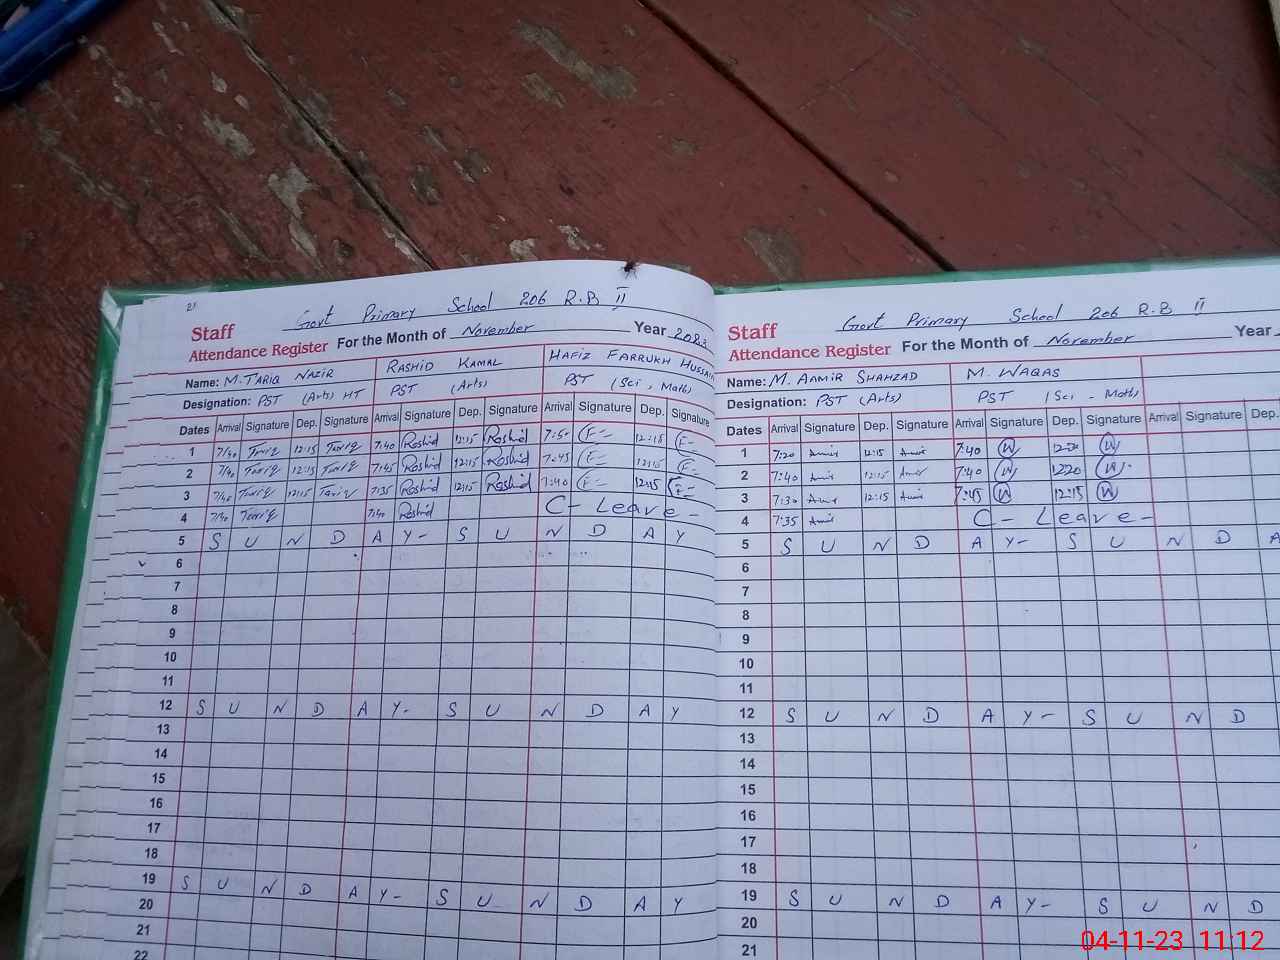 21
Govt Primary School 206 R.B II
Staff
Attendance Register For the Month of November Year 2023
Name: M. TARIQ NAZIR RASHID KAMAL HAFIZ FARRUKH HUSSAIN
Designation: PST (Arts) HT PST (Arts) PST (Sci, Math)
Dates Arrival Signature Dep. Signature Arrival Signature Dep. Signature Arrival Signature Dep. Signature
1 7/40 Tariq 12:15 Tariq 7:40 Rashid 12:15 Rashid 7:50 F 12:15 F
2 7/40 Tariq 12:15 Tariq 7:45 Rashid 12:15 Rashid 7:45 F 12:15 F
3 7/40 Tariq 12:15 Tariq 7:35 Rashid 12:15 Rashid 7:40 F 12:15 F
4 7/40 Tariq 7:40 Rashid C - Leave -
5 S U N D A Y - S U N D A Y
6
7
8
9
10
11
12 S U N D A Y - S U N D A Y
13
14
15
16
17
18
19 S U N D A Y - S U N D A Y
20
21
22
Govt Primary School 206 R.B II
Staff
Attendance Register For the Month of November Year
Name: M. AAMIR SHAHZAD M. WAQAS
Designation: PST (Arts) PST (Sci - Math)
Dates Arrival Signature Dep. Signature Arrival Signature Dep. Signature Arrival Signature Dep.
1 7:20 Amir 12:15 Amir 7:40 W 12:20 W
2 7:40 Amir 12:15 Amir 7:40 W 12:20 W
3 7:30 Amir 12:15 Amir 7:45 W 12:15 W
4 7:35 Amir C - Leave -
5 S U N D A Y - S U N D A
6
7
8
9
10
11
12 S U N D A Y - S U N D
13
14
15
16
17
18
19 S U N D A Y - S U N D
20
21
04-11-23 11:12